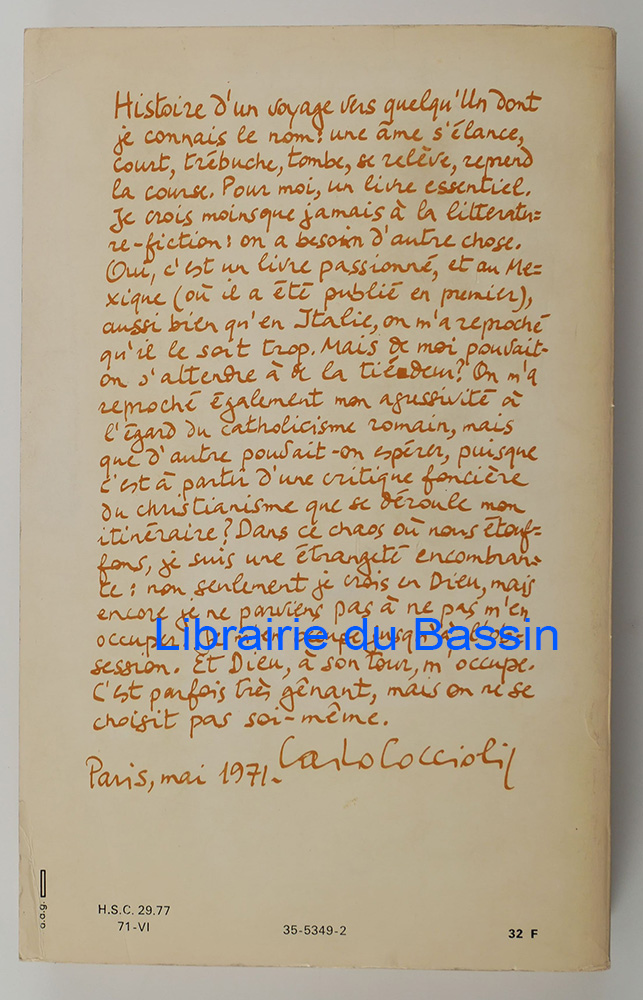 Histoire d'un voyage vers quelqu'Un dont
je connais le nom: une âme s'élance,
court, trébuche, tombe, se relève, reprend
la course. Pour moi, un livre essentiel.
Je crois moins que jamais à la littératu=
re-fiction: on a besoin d'autre chose.
Oui, c'est un livre passionné, et au Me=
xique (où il a été publié en premier),
aussi bien qu'en Italie, on m'a reproché
qu'il le soit trop. Mais de moi pouvait-
on s'attendre à de la tiédeur? On m'a
reproché également mon agressivité à
l'égard du catholicisme romain, mais
que d'autre pouvait-on espérer, puisque
c'est à partir d'une critique foncière
du christianisme que se déroule mon
itinéraire? Dans ce chaos où nous étouf=
fons, je suis une étrangeté encombran=
te: non seulement je crois en Dieu, mais
encore je ne parviens pas à ne pas m'en
occuper! Je m'en occupe jusqu'à l'ob=
Librairie du Bassin
session. Et Dieu, à son tour, m'occupe.
C'est parfois très gênant, mais on ne se
choisit pas soi-même.
Paris, mai 1971. Carlo Coccioli
a.a.g.
H.S.C. 29.77
71-VI
35-5349-2
32 F